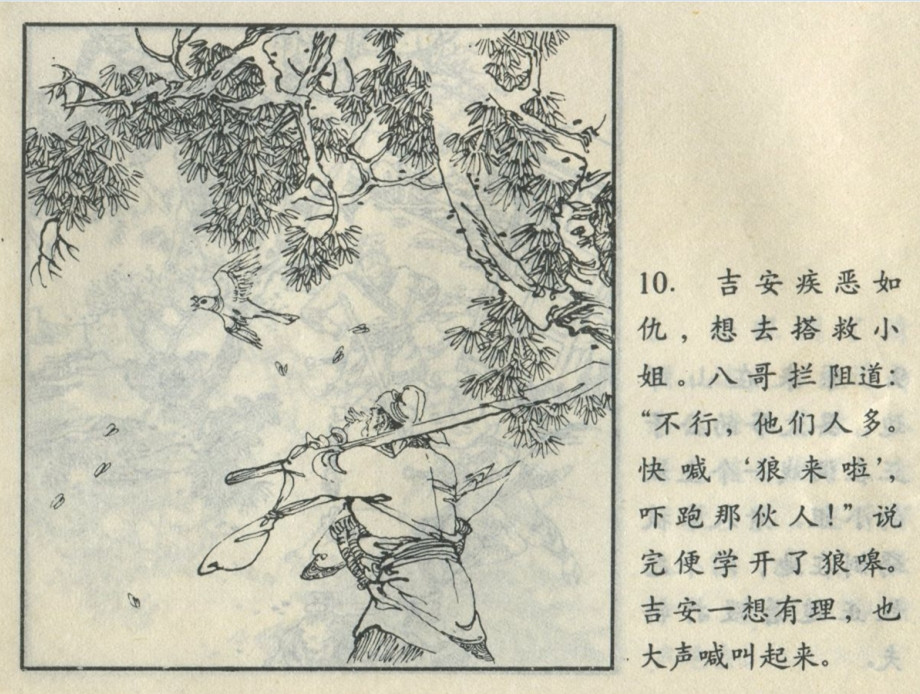 10. 吉安疾恶如
仇，想去搭救小
姐。八哥拦阻道：
“不行，他们人多。
快喊‘狼来啦’，
吓跑那伙人！”说
完便学开了狼嗥。
吉安一想有理，也
大声喊叫起来。